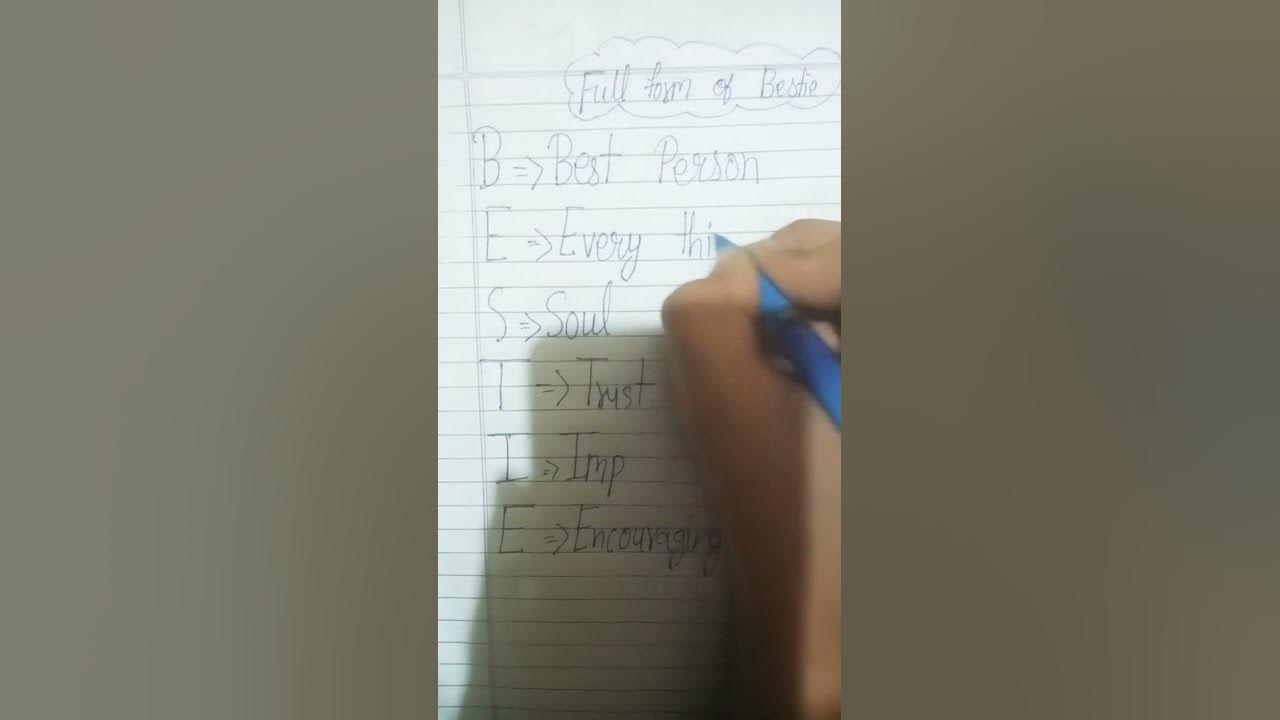 Full form of Bestie
B => Best Person
E => Every thi
S => Soul
T => Trust
I => Imp
E => Encouraging